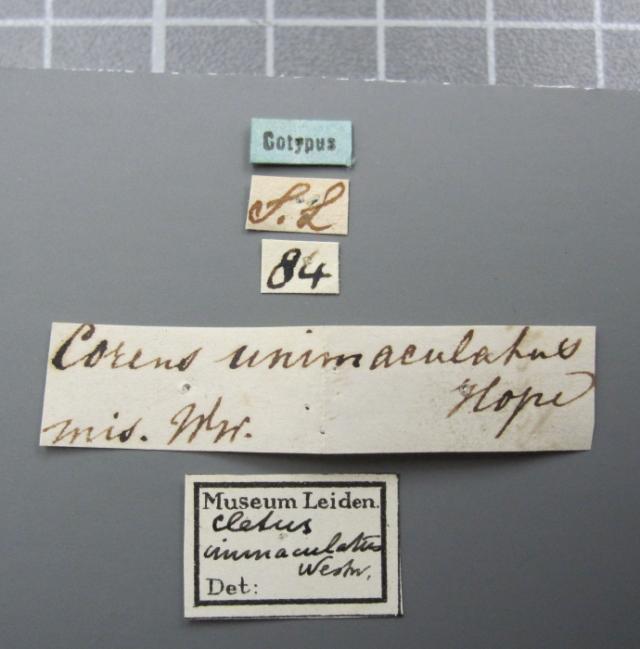 Cotypus
S.L
84
Coreus unimaculatus
Hope
mis. Ww.
Museum Leiden.
Cletus
unimaculatus
Westw.
Det: